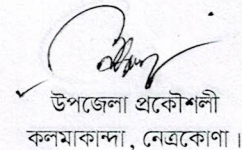 উপজেলা প্রকৌশলী
কলমাকান্দা, নেত্রকোণা।